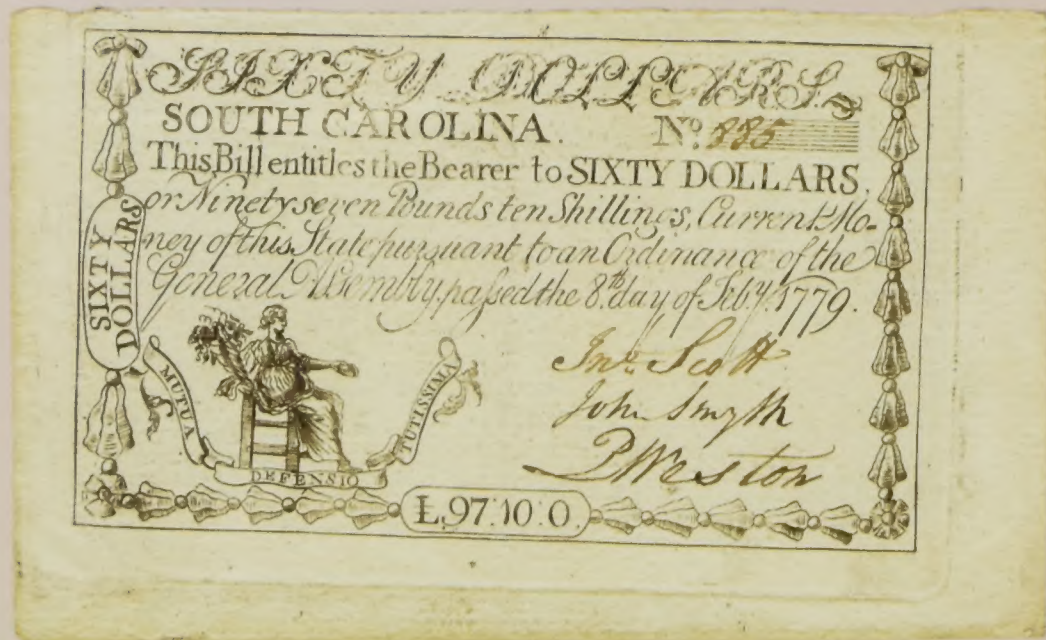 SIXTY DOLLARS
SOUTH CAROLINA. No. 885
This Bill entitles the Bearer to SIXTY DOLLARS,
or Ninety seven Pounds ten Shillings, Current Mo-
ney of this State pursuant to an Ordinance of the
General Assembly, passed the 8th. day of Feb.y 1779.
SIXTY
DOLLARS
MUTUA
DEFENSIO
TUTISSIMA
Jno. Scott
John Smyth
P Weston
£,97:10:0.